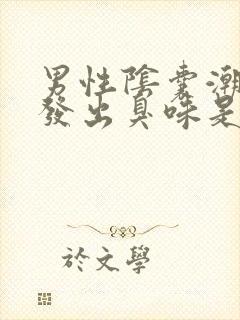 男性陰囊潮
發出臭味是
於文學